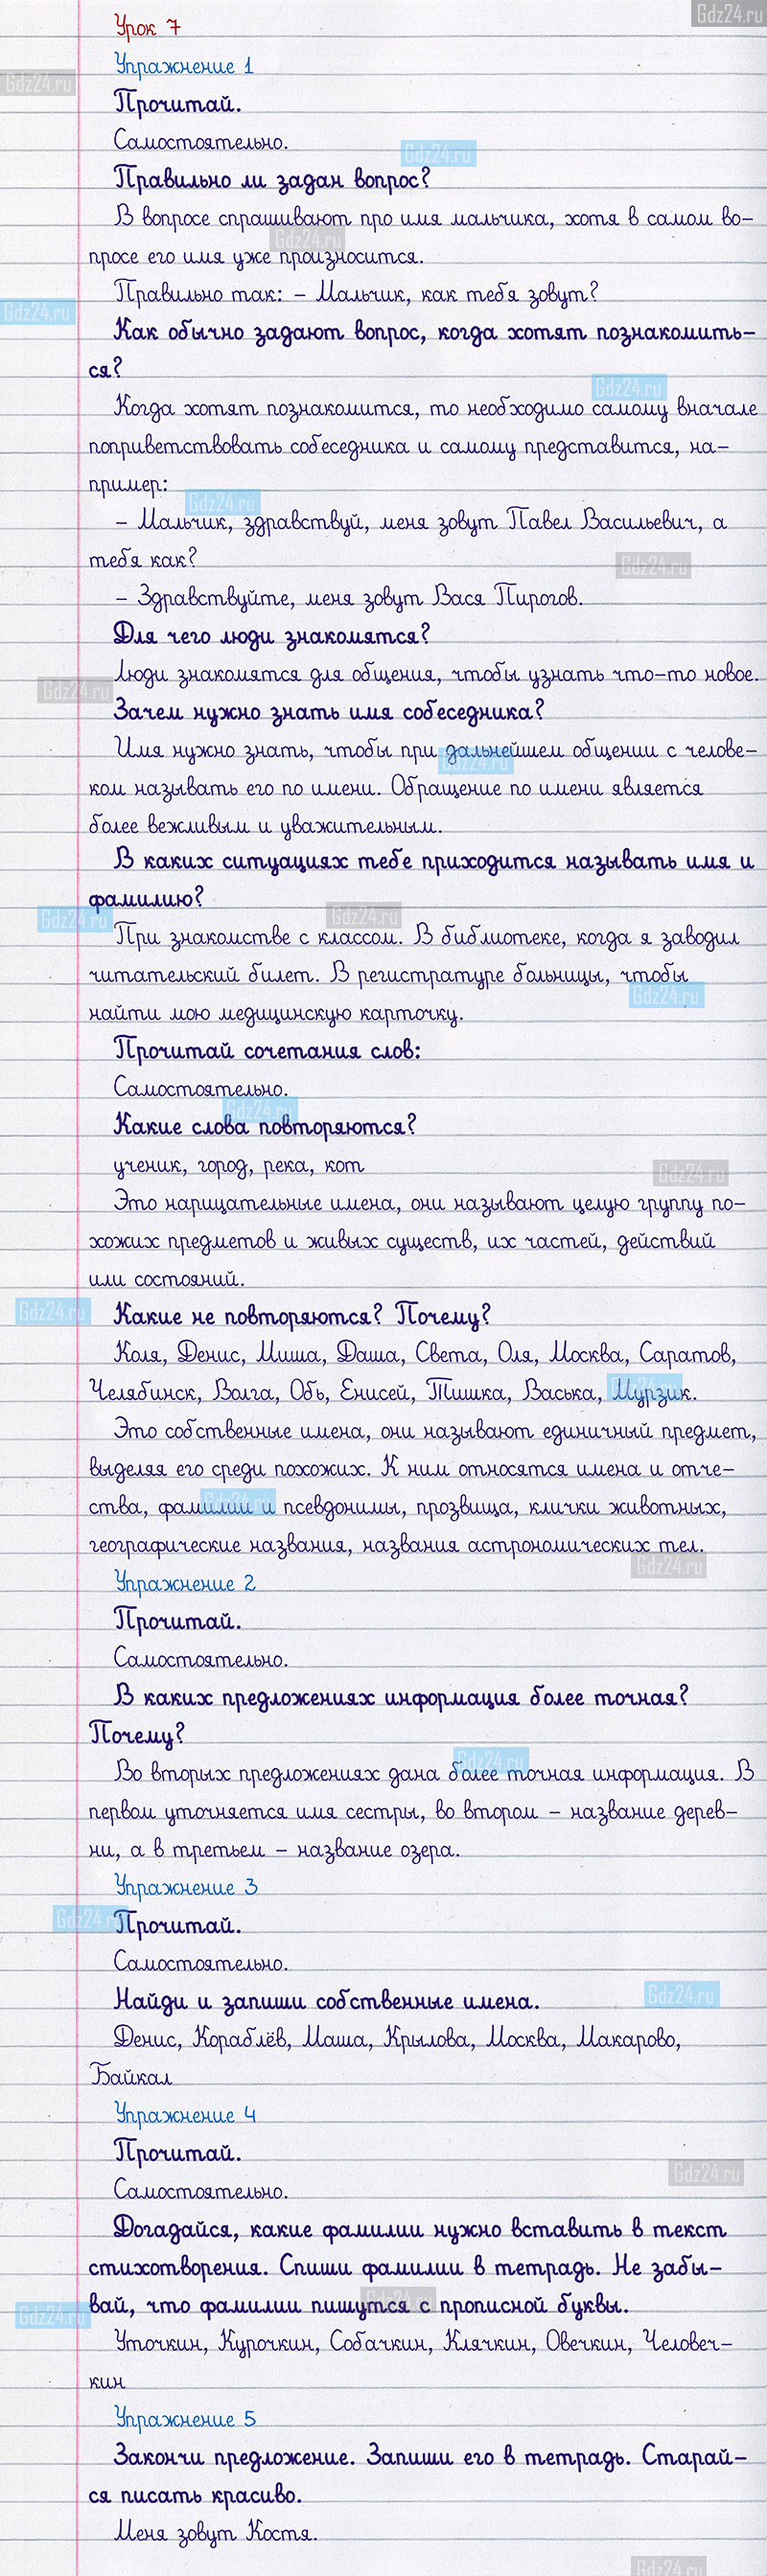 Gdz24.ru
Урок 7
Упражнение 1
Gdz24.ru
Прочитай.
Самостоятельно.
Gdz24.ru
Правильно ли задан вопрос?
В вопросе спрашивают про имя мальчика, хотя в самом во-
Gdz24.ru
просе его имя уже произносится.
Правильно так: – Мальчик, как тебя зовут?
Gdz24.ru
Как обычно задают вопрос, когда хотят познакомить-
ся?
Gdz24.ru
Когда хотят познакомится, то необходимо самому вначале
поприветствовать собеседника и самому представится, на-
пример:
Gdz24.ru
– Мальчик, здравствуй, меня зовут Павел Васильевич, а
тебя как?
Gdz24.ru
– Здравствуйте, меня зовут Вася Пирогов.
Для чего люди знакомятся?
Люди знакомятся для общения, чтобы узнать что-то новое.
Gdz24.ru
Зачем нужно знать имя собеседника?
Имя нужно знать, чтобы при дальнейшем общении с челове-
Gdz24.ru
ком называть его по имени. Обращение по имени является
более вежливым и уважительным.
В каких ситуациях тебе приходится называть имя и
фамилию?
Gdz24.ru
Gdz24.ru
При знакомстве с классом. В библиотеке, когда я заводил
читательский билет. В регистратуре больницы, чтобы
Gdz24.ru
найти мою медицинскую карточку.
Прочитай сочетания слов:
Самостоятельно.
Gdz24.ru
Какие слова повторяются?
ученик, город, река, кот
Gdz24.ru
Это нарицательные имена, они называют целую группу по-
хожих предметов и живых существ, их частей, действий
или состояний.
Gdz24.ru
Какие не повторяются? Почему?
Коля, Денис, Миша, Даша, Света, Оля, Москва, Саратов,
Челябинск, Волга, Обь, Енисей, Тишка, Васька, Мурзик.
Gdz24.ru
Это собственные имена, они называют единичный предмет,
выделяя его среди похожих. К ним относятся имена и отче-
ства, фамилии и псевдонимы, прозвища, клички животных,
Gdz24.ru
географические названия, названия астрономических тел.
Gdz24.ru
Упражнение 2
Прочитай.
Самостоятельно.
В каких предложениях информация более точная?
Почему?
Gdz24.ru
Во вторых предложениях дана более точная информация. В
первом уточняется имя сестры, во втором – название дерев-
ни, а в третьем – название озера.
Упражнение 3
Gdz24.ru
Прочитай.
Самостоятельно.
Gdz24.ru
Найди и запиши собственные имена.
Денис, Кораблёв, Маша, Крылова, Москва, Макарово,
Байкал
Упражнение 4
Прочитай.
Gdz24.ru
Самостоятельно.
Догадайся, какие фамилии нужно вставить в текст
стихотворения. Спиши фамилии в тетрадь. Не забы-
вай, что фамилии пишутся с прописной буквы.
Gdz24.ru
Gdz24.ru
Уточкин, Курочкин, Собачкин, Клячкин, Овечкин, Человеч-
кин
Упражнение 5
Закончи предложение. Запиши его в тетрадь. Старай-
ся писать красиво.
Меня зовут Костя.
Gdz24.ru